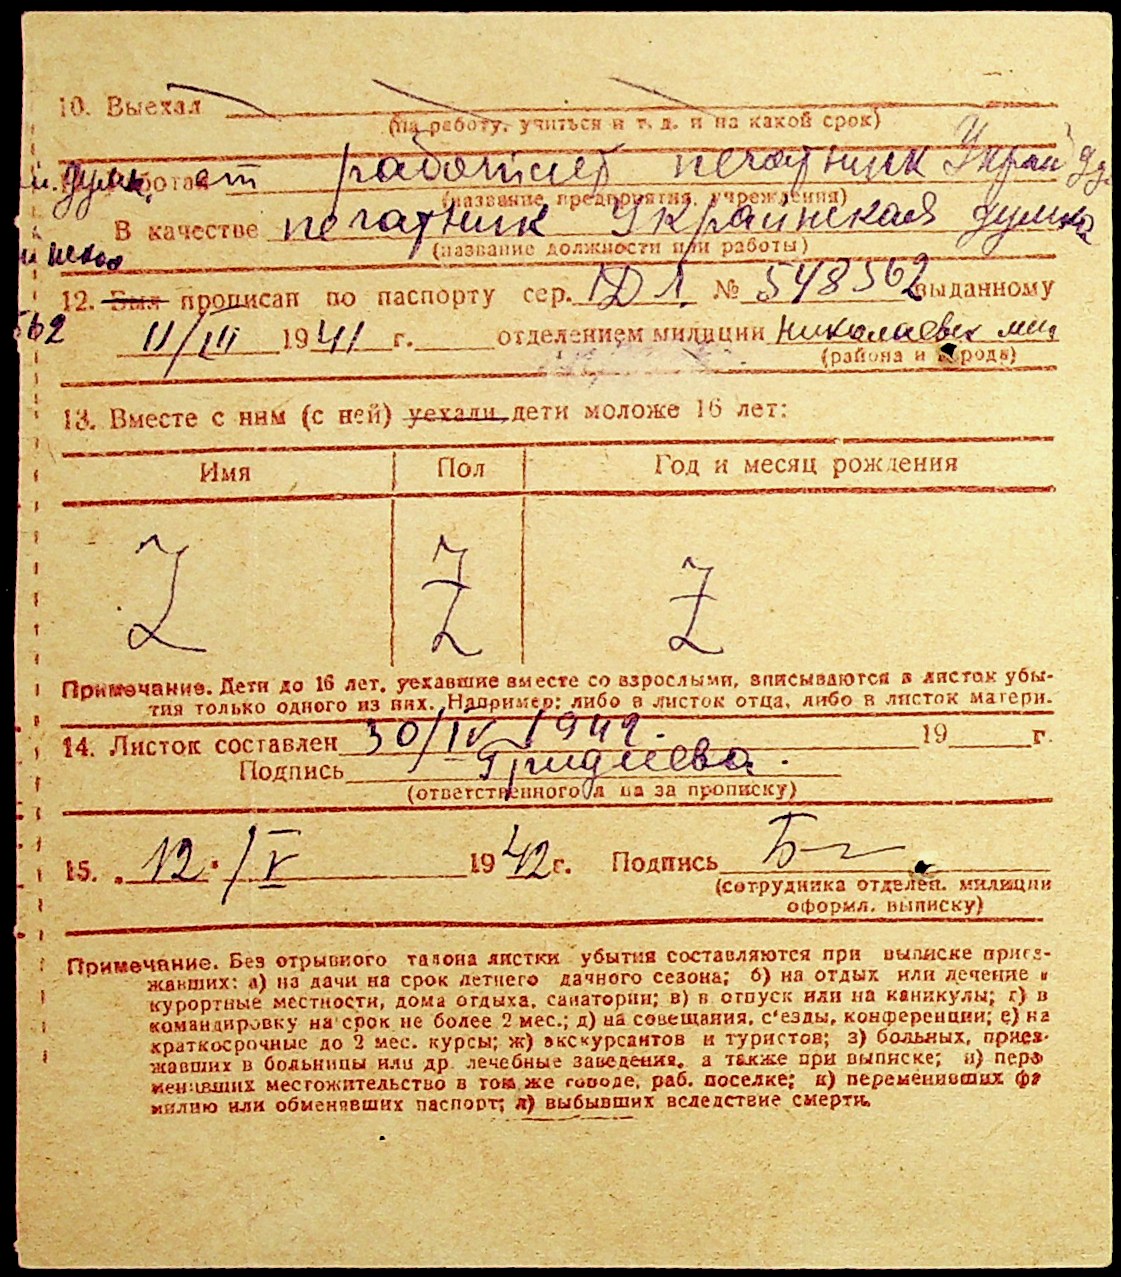 10. Выехал
(на работу, учиться и т. д. и на какой срок)
работает печатник Украй ду.
(название предприятия, учреждения)
В качестве печатник Украинская думка
(название должности или работы)
12. Был прописан по паспорту сер. № 548562 выданному
562
11/III 1941 г. отделением милиции Николаевск
(района и города)
13. Вместе с ним (с ней) уехали дети моложе 16 лет:
Имя Пол Год и месяц рождения
Z Z Z
Примечание. Дети до 16 лет, уехавшие вместе со взрослыми, вписываются в листок убы-
тия только одного из них. Например: либо в листок отца, либо в листок матери.
14. Листок составлен 30/IV 1942. 19 г.
Подпись Гридиева.
(ответственного л на за прописку)
15. 12 / V 1942 г. Подпись
(сотрудника отделен. милиции
оформл. выписку)
Примечание. Без отрывного талона листки убытия составляются при выписке приез-
жавших: а) на дачи на срок летнего дачного сезона; б) на отдых или лечение в
курортные местности, дома отдыха, санатории; в) в отпуск или на каникулы; г) в
командировку на срок не более 2 мес.; д) на совещания, с'езды, конференции; е) на
краткосрочные до 2 мес. курсы; ж) экскурсантов и туристов; з) больных, приез-
жавших в больницы или др. лечебные заведения, а также при выписке; и) пере
менивших местожительство в том же городе, раб. поселке; к) переменивших фа
милию или обменявших паспорт; л) выбывших вследствие смерти.